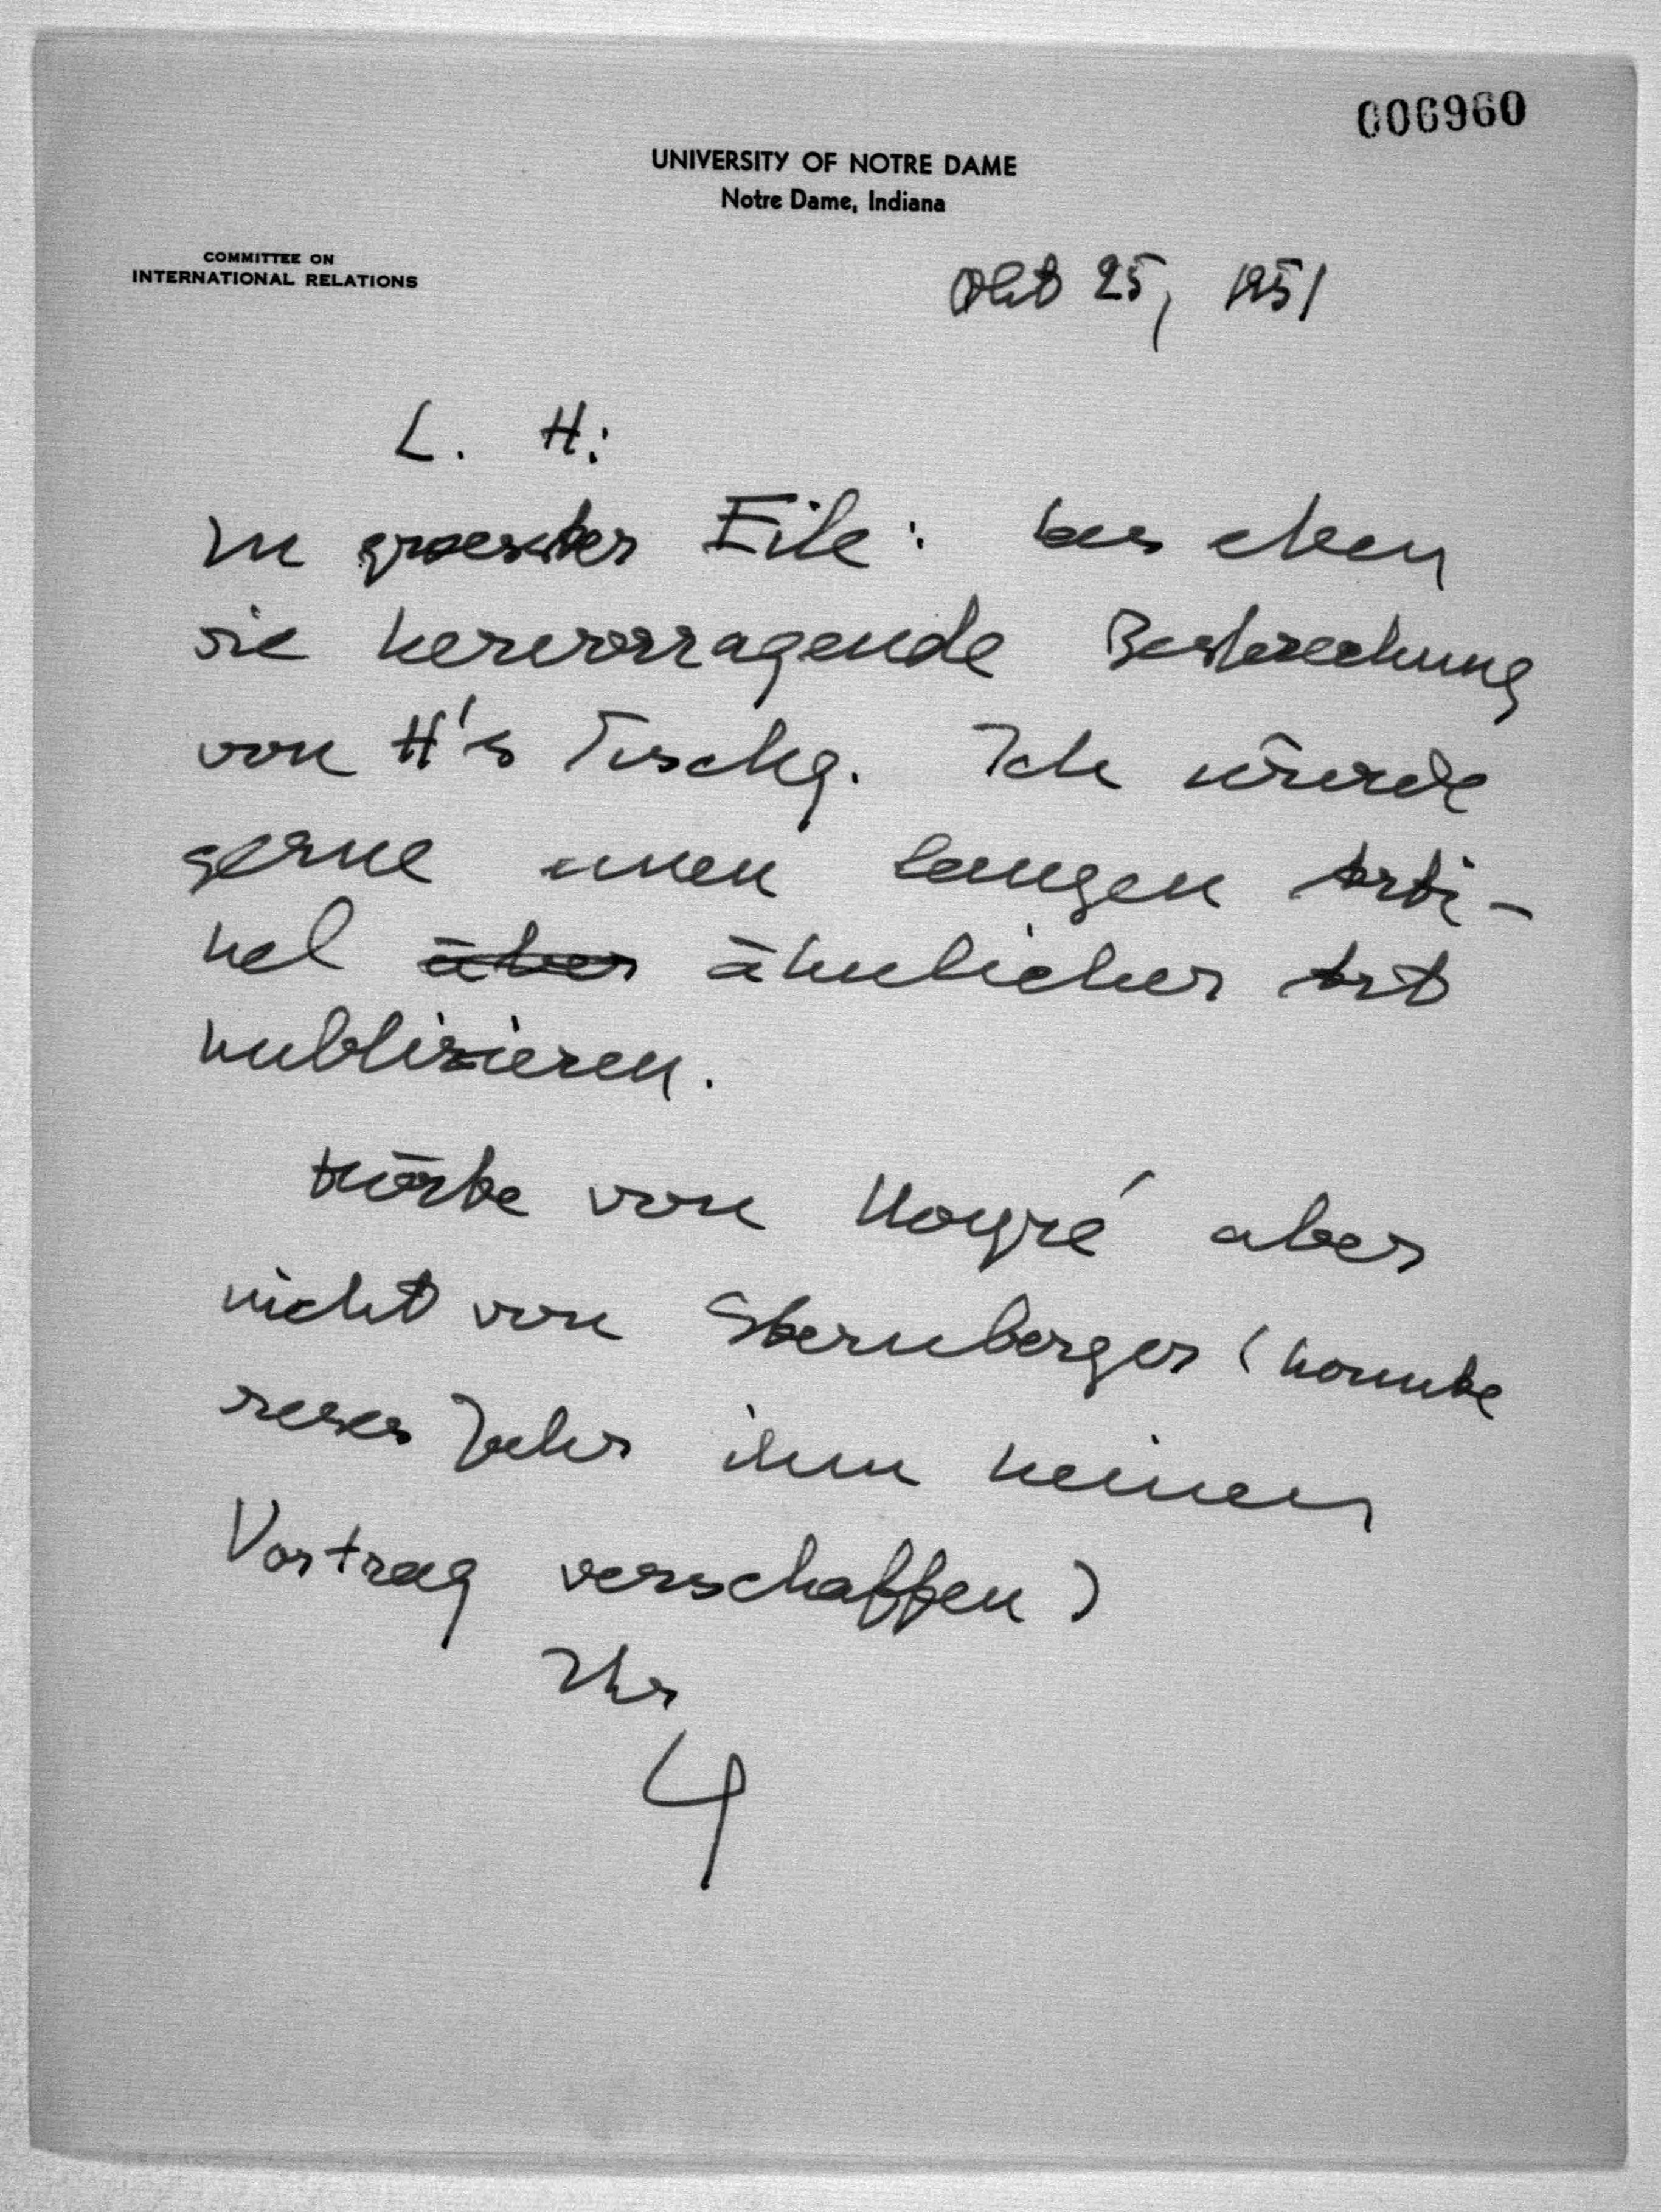 006960
UNIVERSITY OF NOTRE DAME
Notre Dame, Indiana
COMMITTEE ON
INTERNATIONAL RELATIONS
Okt 25, 1951
L. H:
In groesster Eile: las eben
die hervorragende Besprechung
von H's Tischg. Ich würde
gerne einen langen Arti-
kel über ähnlicher Art
publizieren.
Hörte von Koyré aber
nicht von Sternberger (konnte
dieses Jahr ihm keinen
Vortrag verschaffen)
Ihr